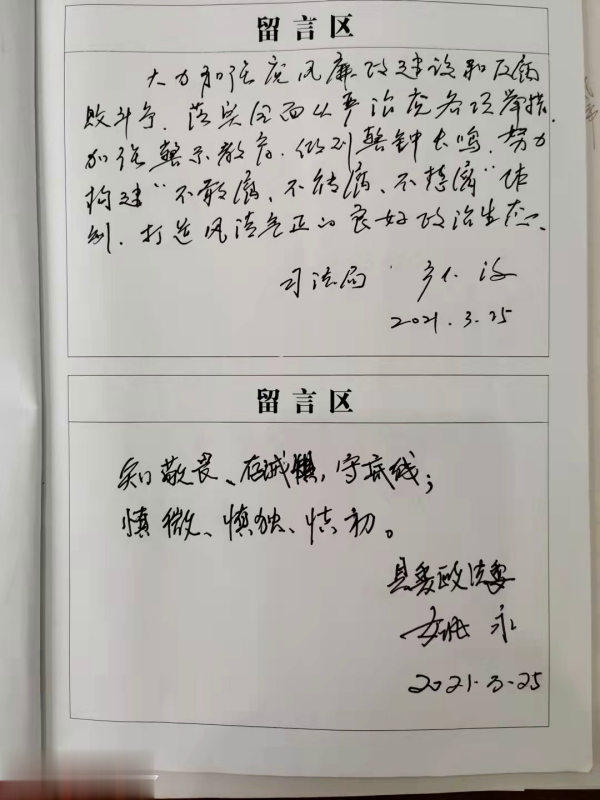 留言区
大力加强党风廉政建设和反腐
败斗争，落实全面从严治党各项举措，
加强警示教育，做到警钟长鸣，努力
构建“不敢腐、不能腐、不想腐”体
制，打造风清气正的良好政治生态。
司法局
2021.3.25
留言区
知敬畏、存戒惧，守底线；
慎微、慎独、慎初。
县委政法委
姚永
2021.3.25